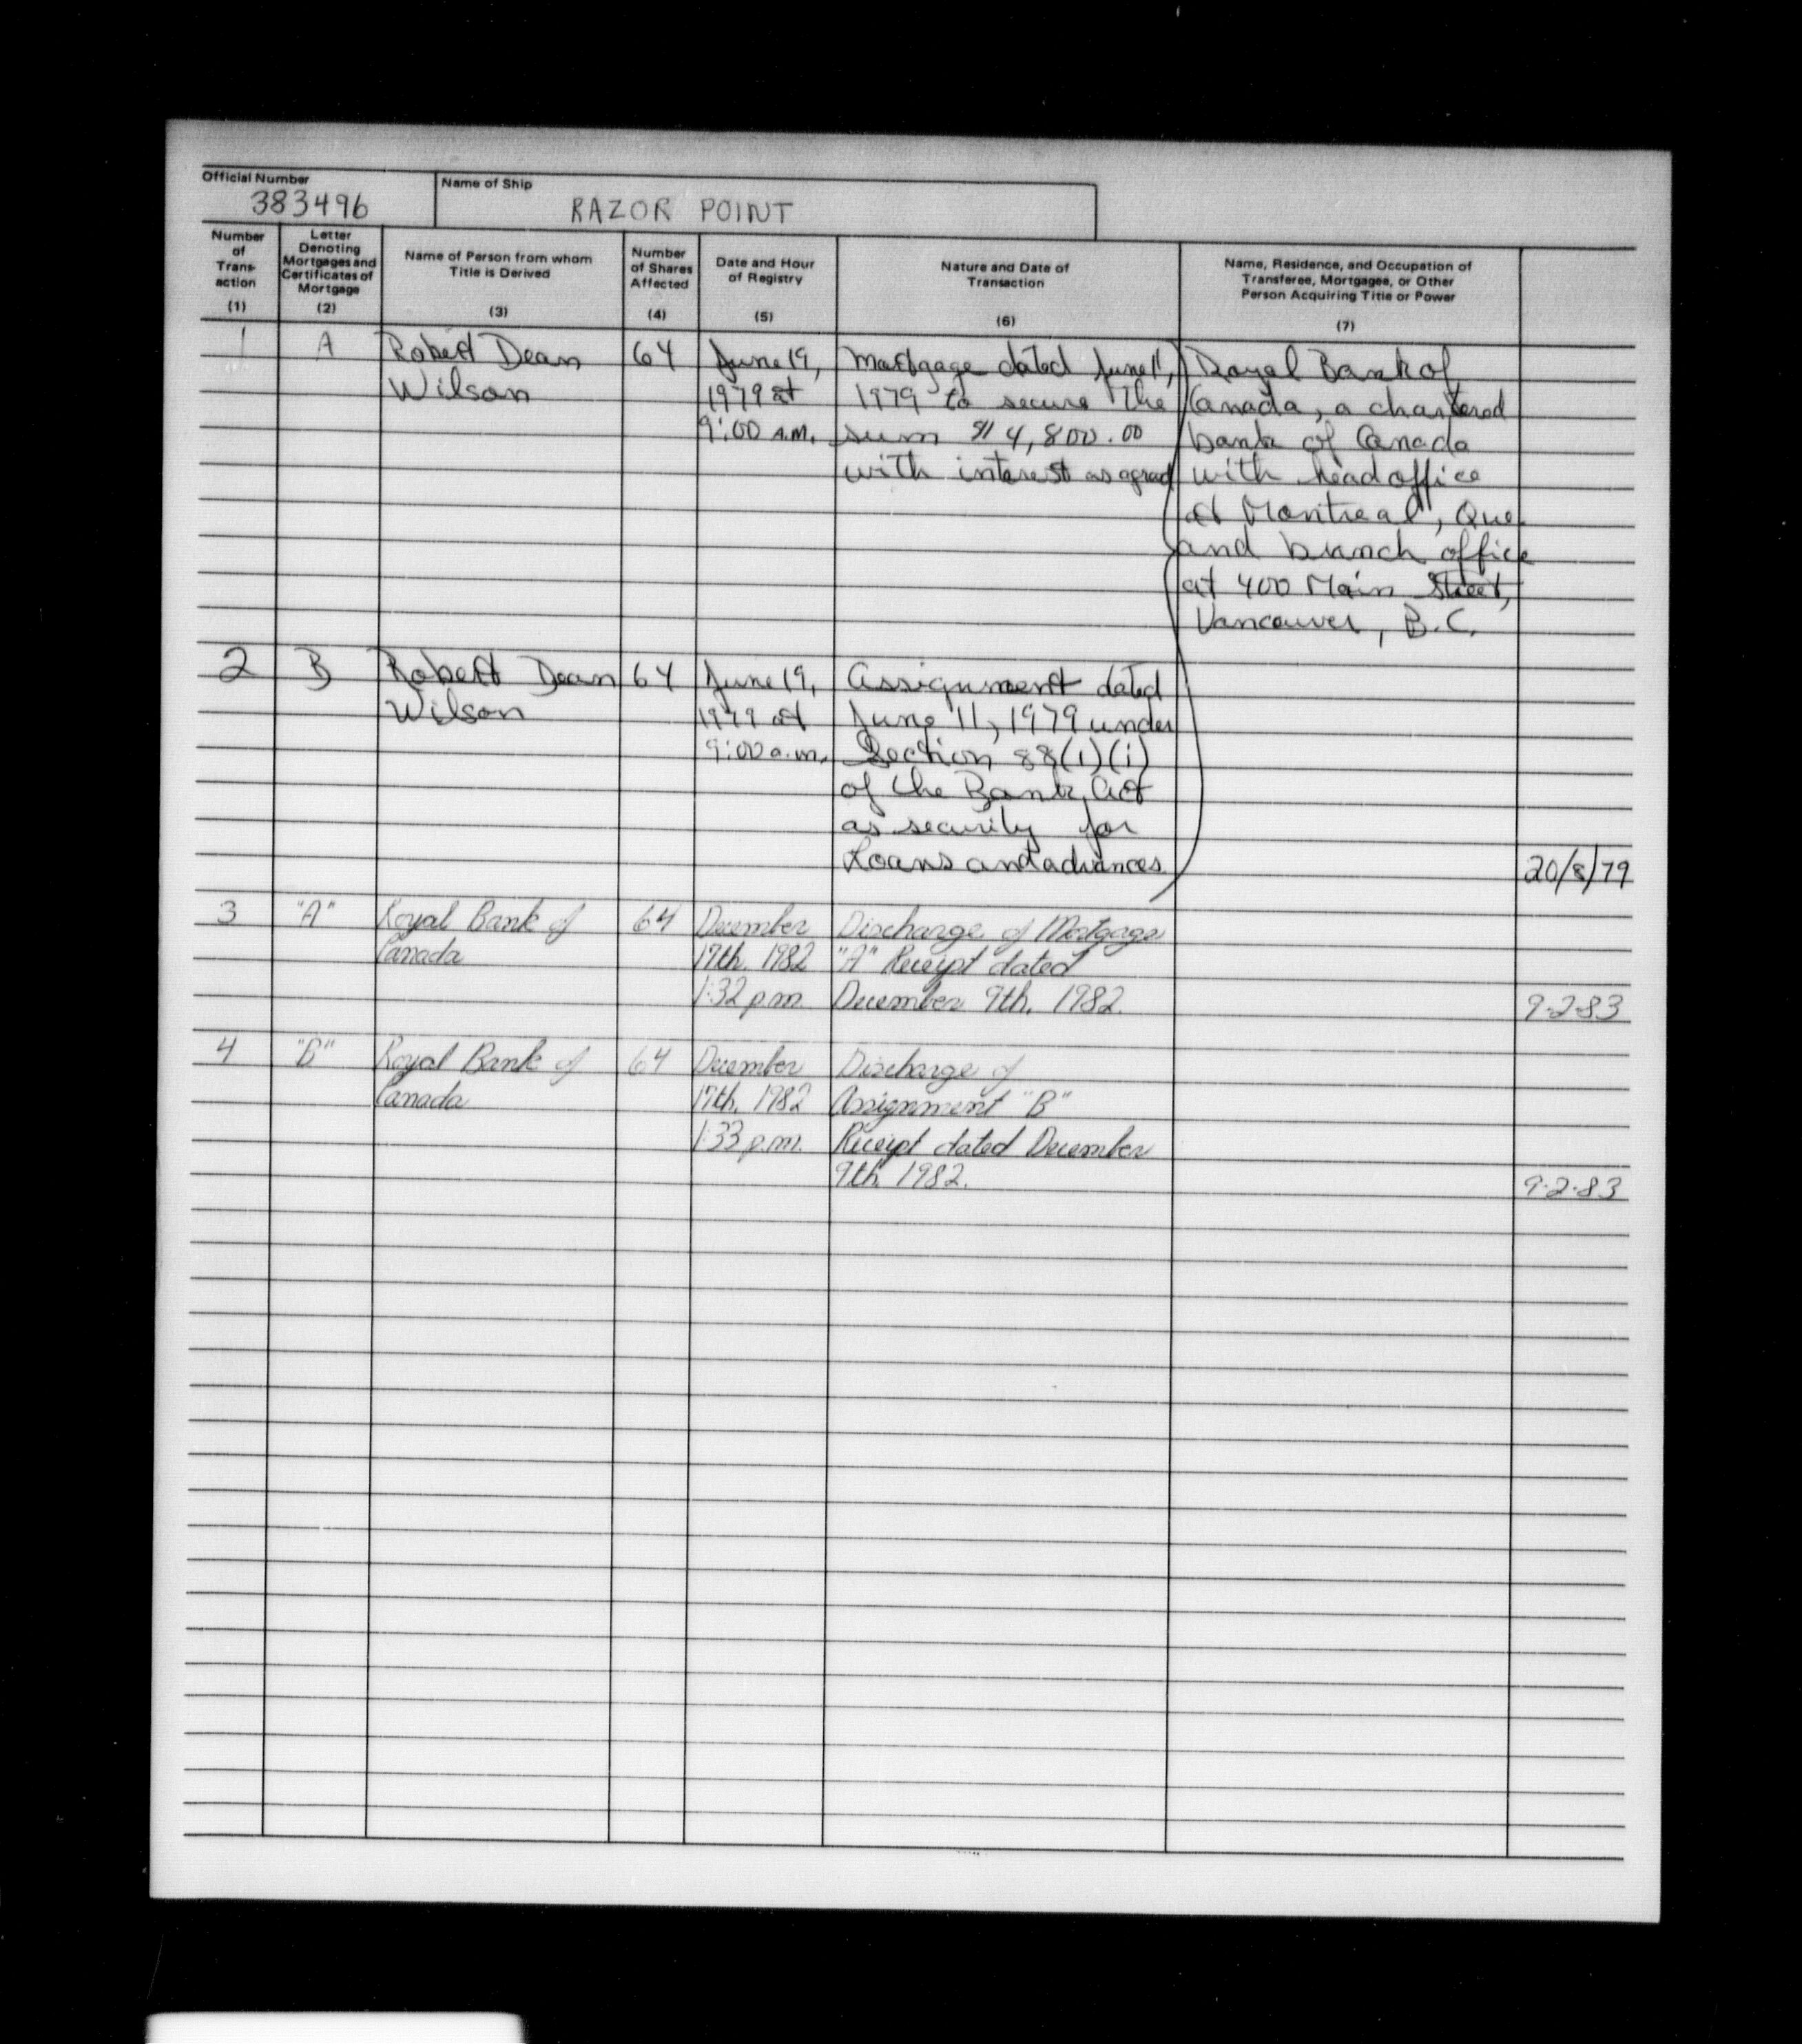 Official Number
383496
Name of Ship
RAZOR POINT
Number
of
Trans-
action
(1)
Letter
Denoting
Mortgages and
Certificates of
Mortgage
(2)
Name of Person from whom
Title is Derived
(3)
Number
of Shares
Affected
(4)
Date and Hour
of Registry
(5)
Nature and Date of
Transaction
(6)
Name, Residence, and Occupation of
Transferee, Mortgagee, or Other
Person Acquiring Title or Power
(7)
1
A
Robert Dean
Wilson
64
June 19,
1979 at
9:00 A.M.
Mortgage dated June 11,
1979 to secure the
sum 4,800.00
with interest as agreed
Royal Bank of
Canada, a chartered
bank of Canada
with head office
at Montreal, Que.
and branch office
at 400 Main Street,
Vancouver, B.C.
2
B
Robert Dean
Wilson
64
June 19,
1979 at
9:00 a.m.
Assignment dated
June 11, 1979 under
Section 88(1)(i)
of the Bank Act
as security for
Loans and advances
20/8/79
3
"A"
Royal Bank of
Canada
64
December
17th, 1982
1:32 p.m.
Discharge of Mortgage
"A" Receipt dated
December 9th, 1982.
9.2.83
4
"B"
Royal Bank of
Canada
64
December
17th, 1982
1:33 p.m.
Discharge of
Assignment "B"
Receipt dated December
9th, 1982.
9.2.83